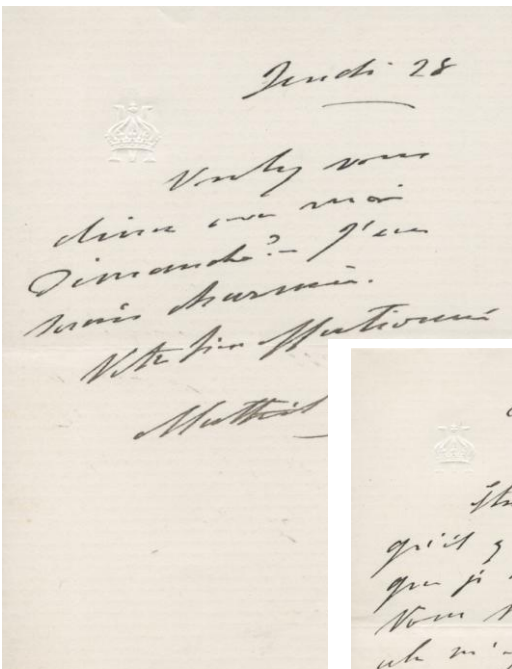 Jeudi 28
Voulez vous
diner avec moi
Dimanche? - J'en
serais charmée.
Votre bien affectionnée
Mathil
qu'il y
que je
Vous